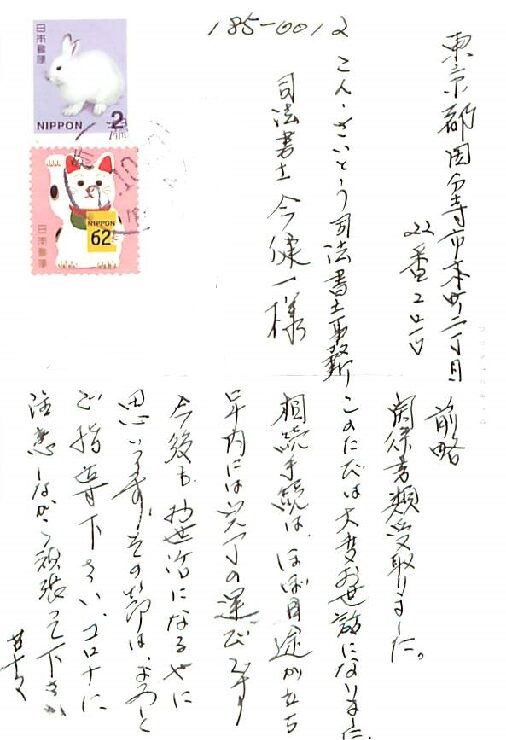 日本郵便
NIPPON
2
日本郵便
NIPPON
62
185-0012
東京都国分寺市本町二丁目
22番2号
こん・さいとう司法書士事務所
司法書士 今健一様
前略
関係書類受取りました。
このたびは大変お世話になりました。
相続手続は、ほぼ目途が立ち
年内には完了の運びです
今後も お世話になるやに
思いますが、その節は、よろしく
ご指導下さい、コロナに
注意しながら頑張って下さい